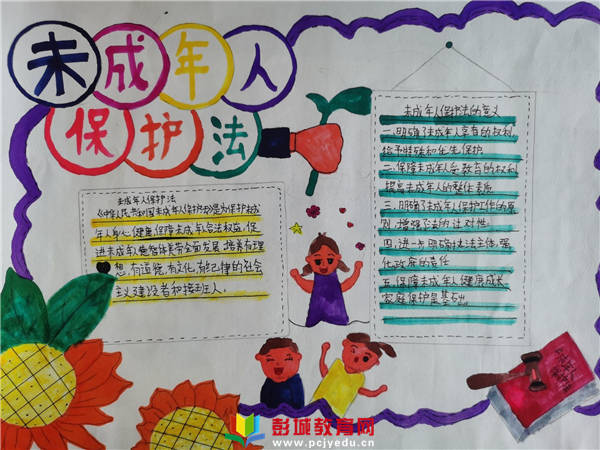 未成年人
保护法
未成年人保护法
《中华人民共和国未成年人保护法》是为保护未成
年人身心健康,保障未成年人合法权益,促
进未成年人德智体美劳全面发展,培养有理
想,有道德,有文化,有纪律的社会
主义建设者和接班人。
未成年人保护法的意义
一、明确了未成年人享有的权利,
给予特殊和优先保护
二、保障未成年人受教育的权利
提高未成年人的整体素质
三、明确了未成年人保护工作的原
则,增强了法的针对性
四、进一步明确执法主体,强
化政府的责任
五、保障未成年人健康成长,
家庭保护是基础
彭城教育网
www.pcjyedu.cn